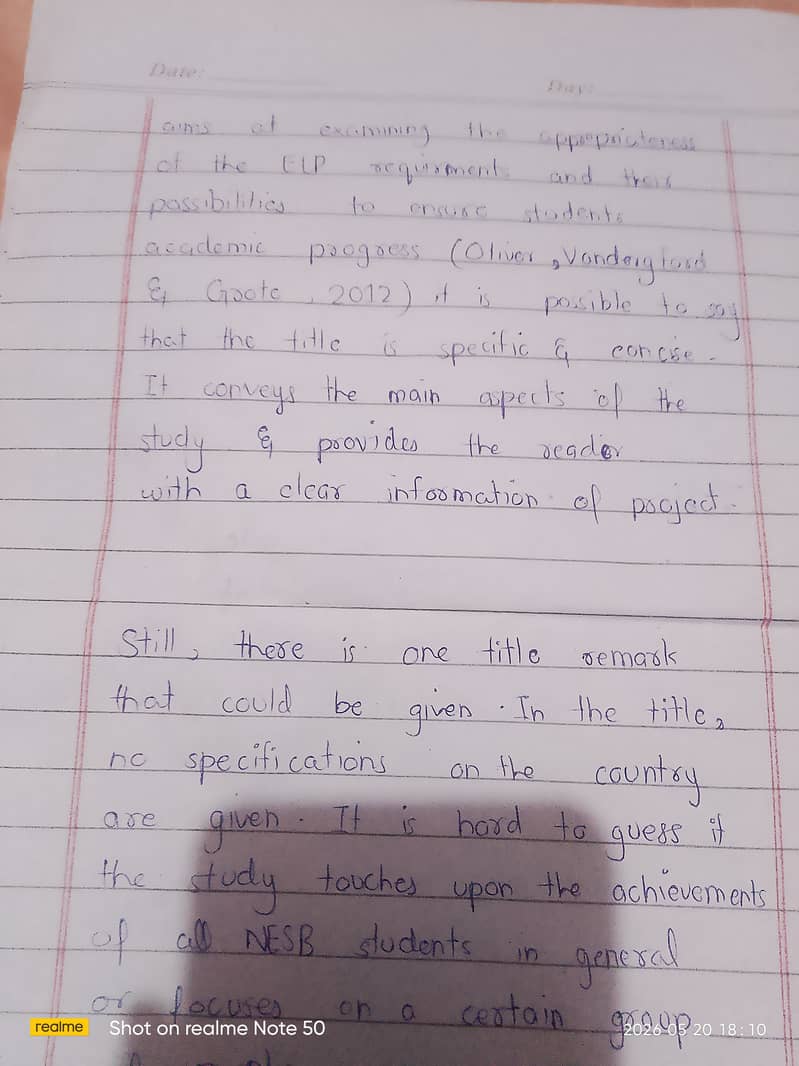 Date:
Day:
aims at examining the appropriateness
of the ELP requirments and their
possibilities to ensure students
academic progress (Oliver, Vanderglord
& Grote, 2012) it is possible to say
that the title is specific & concise.
It conveys the main aspects of the
study & provides the reader
with a clear information of project.
Still, there is one title remark
that could be given. In the title,
no specifications on the country
are given. It is hard to guess if
the study touches upon the achievements
of all NESB students in general
or focuses on a certain group
realme Shot on realme Note 50
2026-05-20 18:10